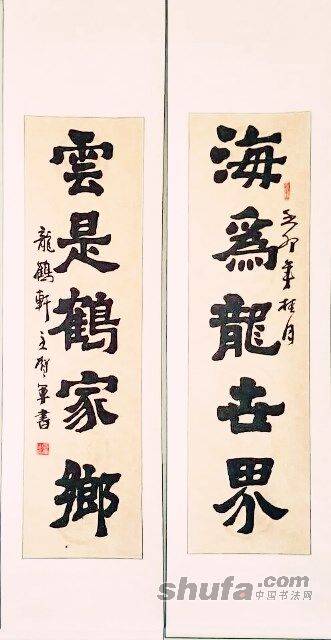 海爲龍世界
癸卯年桂月
雲是鶴家鄉
龍鶴軒主
軍書
shufa.com
中国书法网